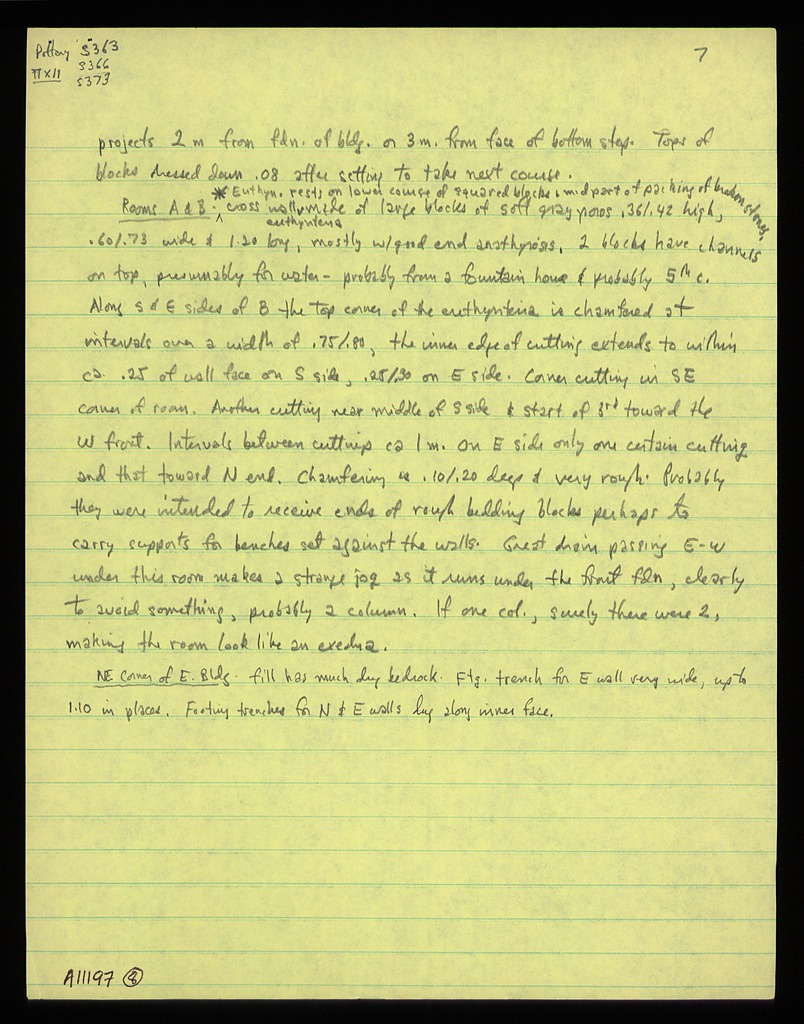 Pottery S363
ΠΧΙΙ S366
S373
7
projects 2 m from fdn. of bldg. or 3 m. from face of bottom step. Tops of
blocks dressed down .08 after setting to take next course.
* Euthyn. rests on lower course of squared blocks & mid part of packing of broken stones.
Rooms A & B. cross wall made of large blocks of soft gray poros .36/.42 high,
euthynteria
.60/.73 wide & 1.20 long, mostly w/good end anathyrosis. 2 blocks have channels
on top, presumably for water - probably from a fountain house & probably 5th c.
Along S & E sides of B the top corner of the euthynteria is chamfered at
intervals over a width of .75/.80, the inner edge of cutting extends to within
ca. .25 of wall face on S side, .25/.30 on E side. Corner cutting in SE
corner of room. Another cutting near middle of S side & start of 3rd toward the
W front. Intervals between cuttings ca 1 m. On E side only one certain cutting
and that toward N end. Chamfering is .10/.20 deep & very rough. Probably
they were intended to receive ends of rough bedding blocks perhaps to
carry supports for benches set against the walls. Great drain passing E-W
under this room makes a strange jog as it runs under the front fdn, clearly
to avoid something, probably a column. If one col., surely there were 2,
making the room look like an exedra.
NE corner of E. Bldg. fill has much dug bedrock. Ftg. trench for E wall very wide, up to
1.10 in places. Footing trenches for N & E walls dug along inner face.
A11197 8